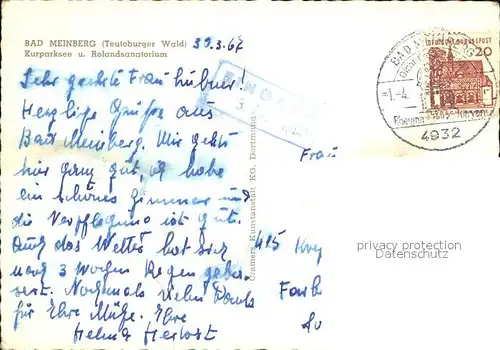 BAD MEINBERG (Teutoburger Wald)
Kurparksee u. Rolandsanatorium
30.3.67
Sehr geehrte Frau Hübner!
Herzliche Grüße aus
Bad Meinberg. Mir geht's
hier ganz gut, ich habe
ein schönes Zimmer und
die Verpflegung ist gut.
Auch das Wetter hat sich
nach 3 Wochen Regen gebes-
sert. Nochmals vielen Dank
für Ihre Mühe. Ihre
Helma Herbst
Cramers Kunstanstalt KG. Dortmund
BAD MEINBERG
DEUTSCHE BUNDESPOST
20
-1.-4.
Rheuma
4932
Frau
415
privacy protection
Datenschutz